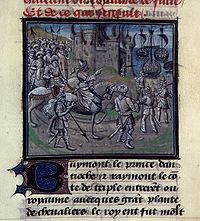 Et de ce que
uymont le prince dan
tioche z raymont le cō
te de triple entreret ou
royaume auecques grāt plante
de cheualiers le roy en fut moult